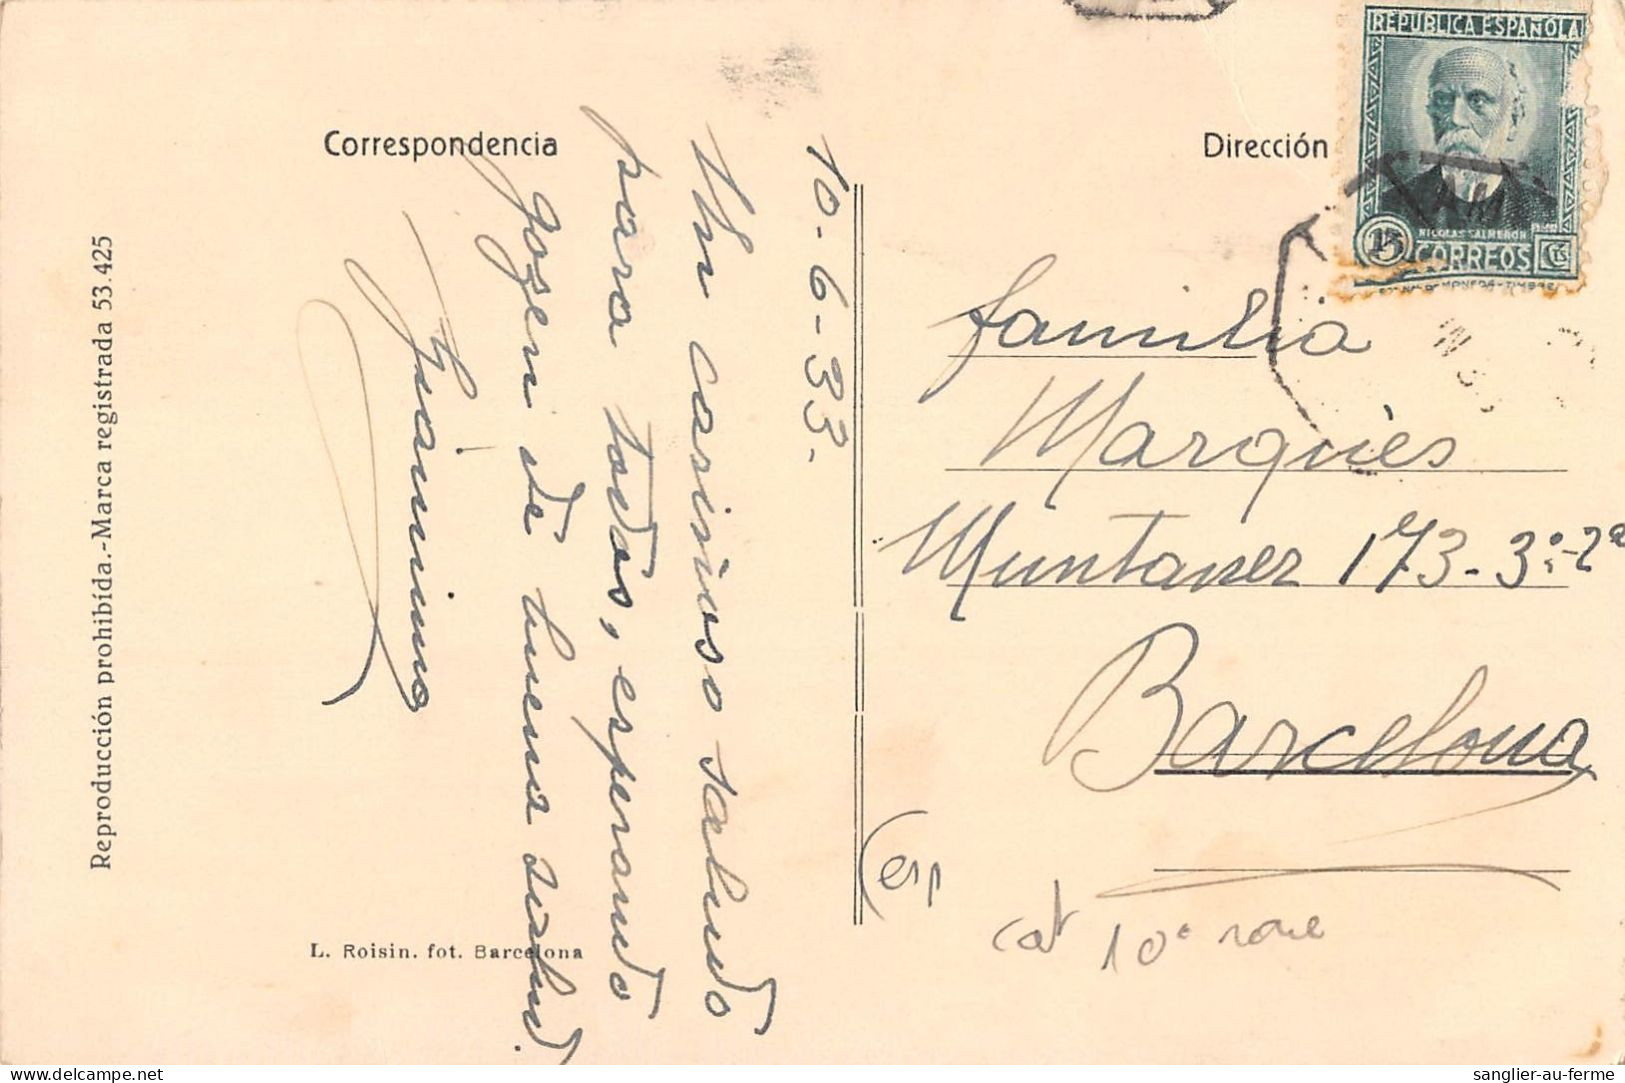 Correspondencia
Dirección
10-6-33-
Un cariñoso saludo
para todos, esperando
gozen de buena salud.
REPUBLICA ESPAÑOLA
NICOLAS SALMERON
15
CORREOS
CTS
familia
Marqués
Muntaner 173-3º-2ª
Barcelona
(esp
cat 10e
L. Roisin. fot. Barcelona
Reproducción prohibida.-Marca registrada 53.425
sanglier-au-ferme